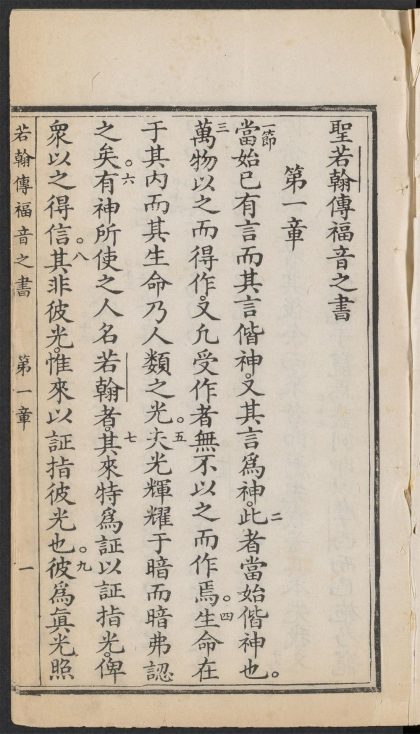 聖若翰傳福音之書
第一章
一節當始已有言而其言偕神。又其言爲神。二此者當始偕神也。
三萬物以之而得作。又凢受作者無不以之而作焉。四生命在
于其内而其生命乃人類之光。五夫光輝耀于暗而暗弗認
之矣。六有神所使之人名若翰者。七其來特爲証以証指光。俾
衆以之得信。八其非彼光。惟來以証指彼光也。九彼爲眞光照
若翰傳福音之書 第一章 一